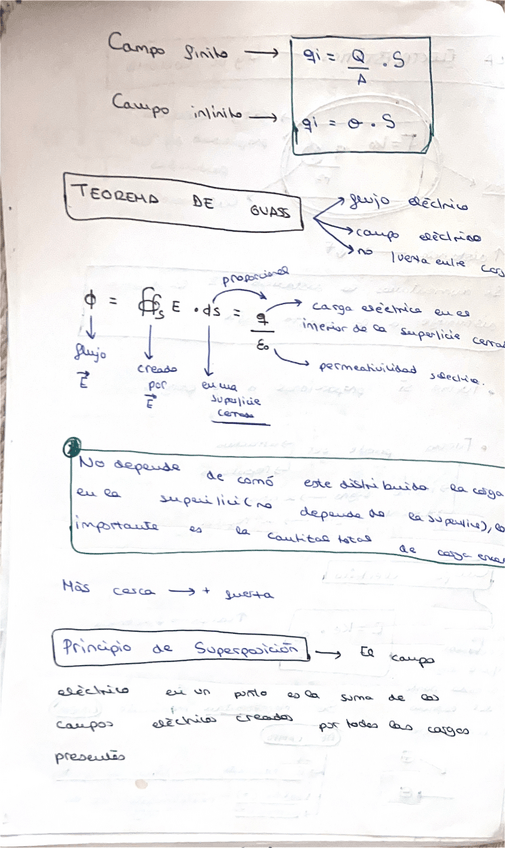 Campo finito → qi = Q/A . S
Campo infinito → qi = σ . S
TEOREMA DE GUASS
→ flujo eléctrico
→ campo eléctrico
→ no fuerza entre
proporcional
ϕ = ∯s E . ds = q/ε₀
→ carga eléctrica en el
interior de la superficie cerrada
→ permeatividad
flujo E⃗
creado por E⃗
en una superficie cerrada
No depende de comó este distribuida la carga
en la superficie (no depende de la superficie), lo
importante es la cantitat total de carga
Más cerca → + fuerza
Principio de Superposición → El campo
eléctrico en un punto es la suma de los
campos eléctricos creados por todas las cargas
presentes